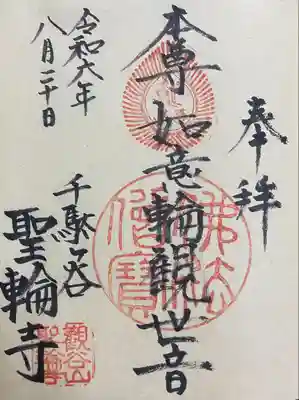 奉拝
本尊如意輪観世音
令和六年
八月二十日
千駄ヶ谷
聖輪寺
佛法僧寶
觀谷山
聖輪寺